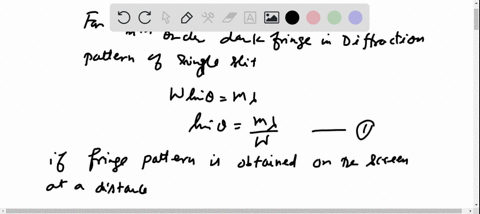 For mth order dark fringe in Diffraction
pattern of single slit
W sinθ = mλ
sinθ = mλ/W —— ①
if fringe pattern is obtained on the screen
at a distance